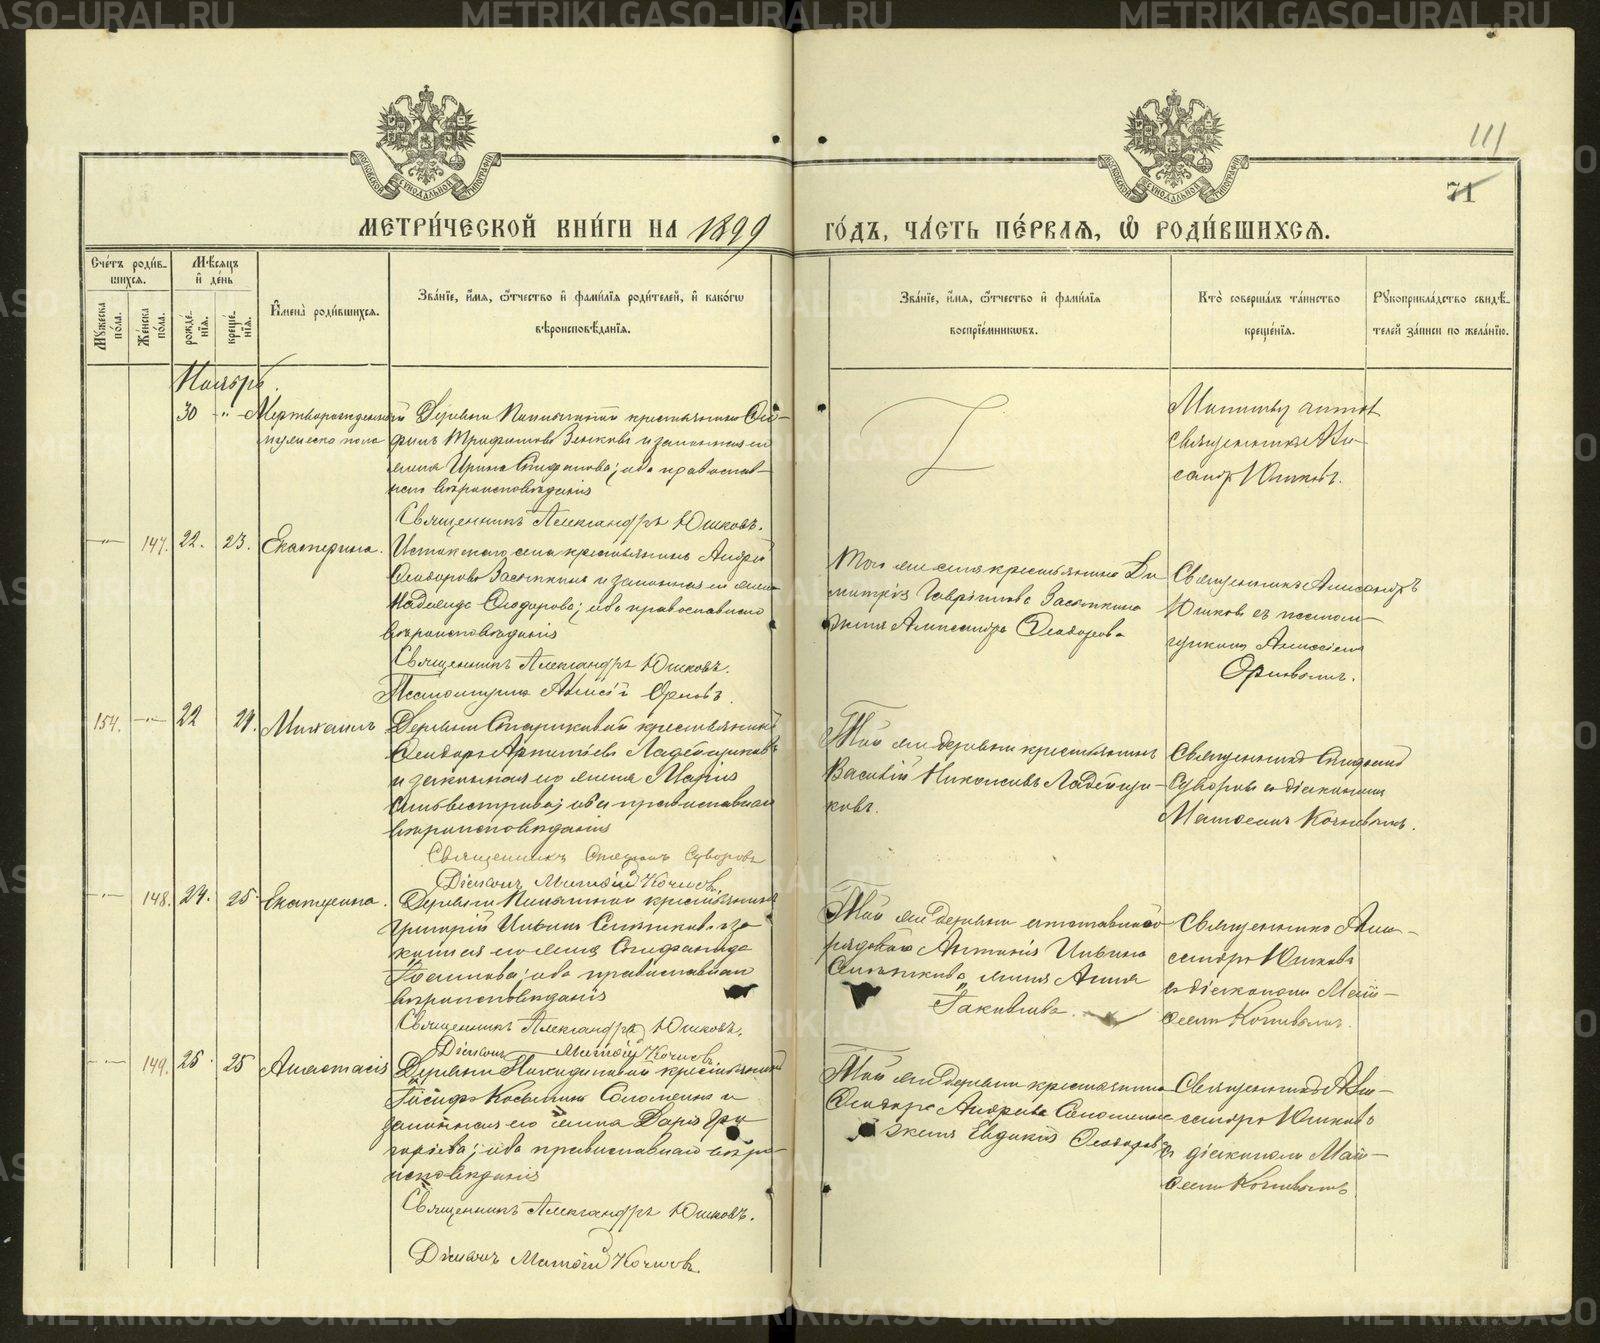 METRIKI.GASO-URAL.RU
111
71
МОСКОВСКОЙ СѴНОДАЛЬНОЙ ТИПОГРАФІИ
МЕТРИ́ЧЕСКОЙ КНИ́ГИ НА 1899
ГО́ДЪ, ЧА́СТЬ ПЕ́РВАѦ, Ѡ҆ РОДИ́ВШИХСѦ.
Сче́тъ роди́вшихсѧ.
Мꙋ́жеска по́ла.
Же́нска по́ла.
Мѣ́сѧцъ и҆ де́нь
рожде́нїѧ.
креще́нїѧ.
И҆мена̀ роди́вшихсѧ.
Зва́нїе, и҆́мѧ, ѻ҆́тчество и҆ фами́лїѧ роди́телей, и҆ како́гѡ
вѣроисповѣ́данїѧ.
Зва́нїе, и҆́мѧ, ѻ҆́тчество и҆ фами́лїѧ
воспрїе́мникѡвъ.
Кто̀ соверша́лъ та́инство
креще́нїѧ.
Рꙋкоприкла́дство свидѣ́телей за́писи по жела́нїю.
Ноябрь.
30 -"- Мертворожденный
мужеска пола
Трифоновъ Зенковъ и законная его
жена Ирина Стефанова; оба православ-
наго вѣроисповѣданія
Священникъ Александръ Юшковъ.
Молитву читалъ
священникъ Алек-
сандръ Юшковъ.
-"- 147. 22. 23. Екатерина.
Истокскаго села крестьянинъ Андрей
Ѳеодоровъ Засыпкинъ и законная его жена
Надежда Ѳеодорова; оба православнаго
вѣроисповѣданія
Священникъ Александръ Юшковъ.
Псаломщикъ Алексій Орловъ.
Того же села крестьянина Ди-
митрія Гавриилова Засыпкина
жена Александра Ѳеодорова
Священникъ Александръ
Юшковъ съ псалом-
щикомъ Алексіемъ
Орловымъ.
154. -"- 22 24. Михаилъ
крестьянинъ
Ѳеодоръ
и законная его жена Марія
Сильвестрова; оба православнаго
вѣроисповѣданія
Священникъ Стефанъ Суворовъ
Діаконъ Матѳій Кочневъ.
Той же деревни крестьянинъ
Василій Николаевъ Ладейщи-
ковъ.
Священникъ Стефанъ
Суворовъ съ діакономъ
Матѳіемъ Кочневымъ.
-"- 148. 24. 25. Екатерина.
крестьянинъ
Григорій Ильинъ и за-
конная его жена Стефанида
Іоаннова; оба православнаго
вѣроисповѣданія
Священникъ Александръ Юшковъ.
Діаконъ Матѳій Кочневъ.
Той же деревни отставнаго
рядоваго Антонія Ильина
жена Анна
Іаковлева.
Священникъ Алек-
сандръ Юшковъ
съ діакономъ Матѳ-
іемъ Кочневымъ.
-"- 149. 25 25 Анастасія
крестьянинъ
Іосифъ Косминъ Соломеинъ и
законная его жена Дарія Гри-
горіева; оба православнаго вѣро-
исповѣданія
Священникъ Александръ Юшковъ.
Діаконъ Матѳій Кочневъ.
Той же деревни крестьянина
Ѳеодора Андреева Соломеина
жена Евдокія Ѳеодорова
Священникъ Алек-
сандръ Юшковъ
съ діакономъ Матѳ-
іемъ Кочневымъ